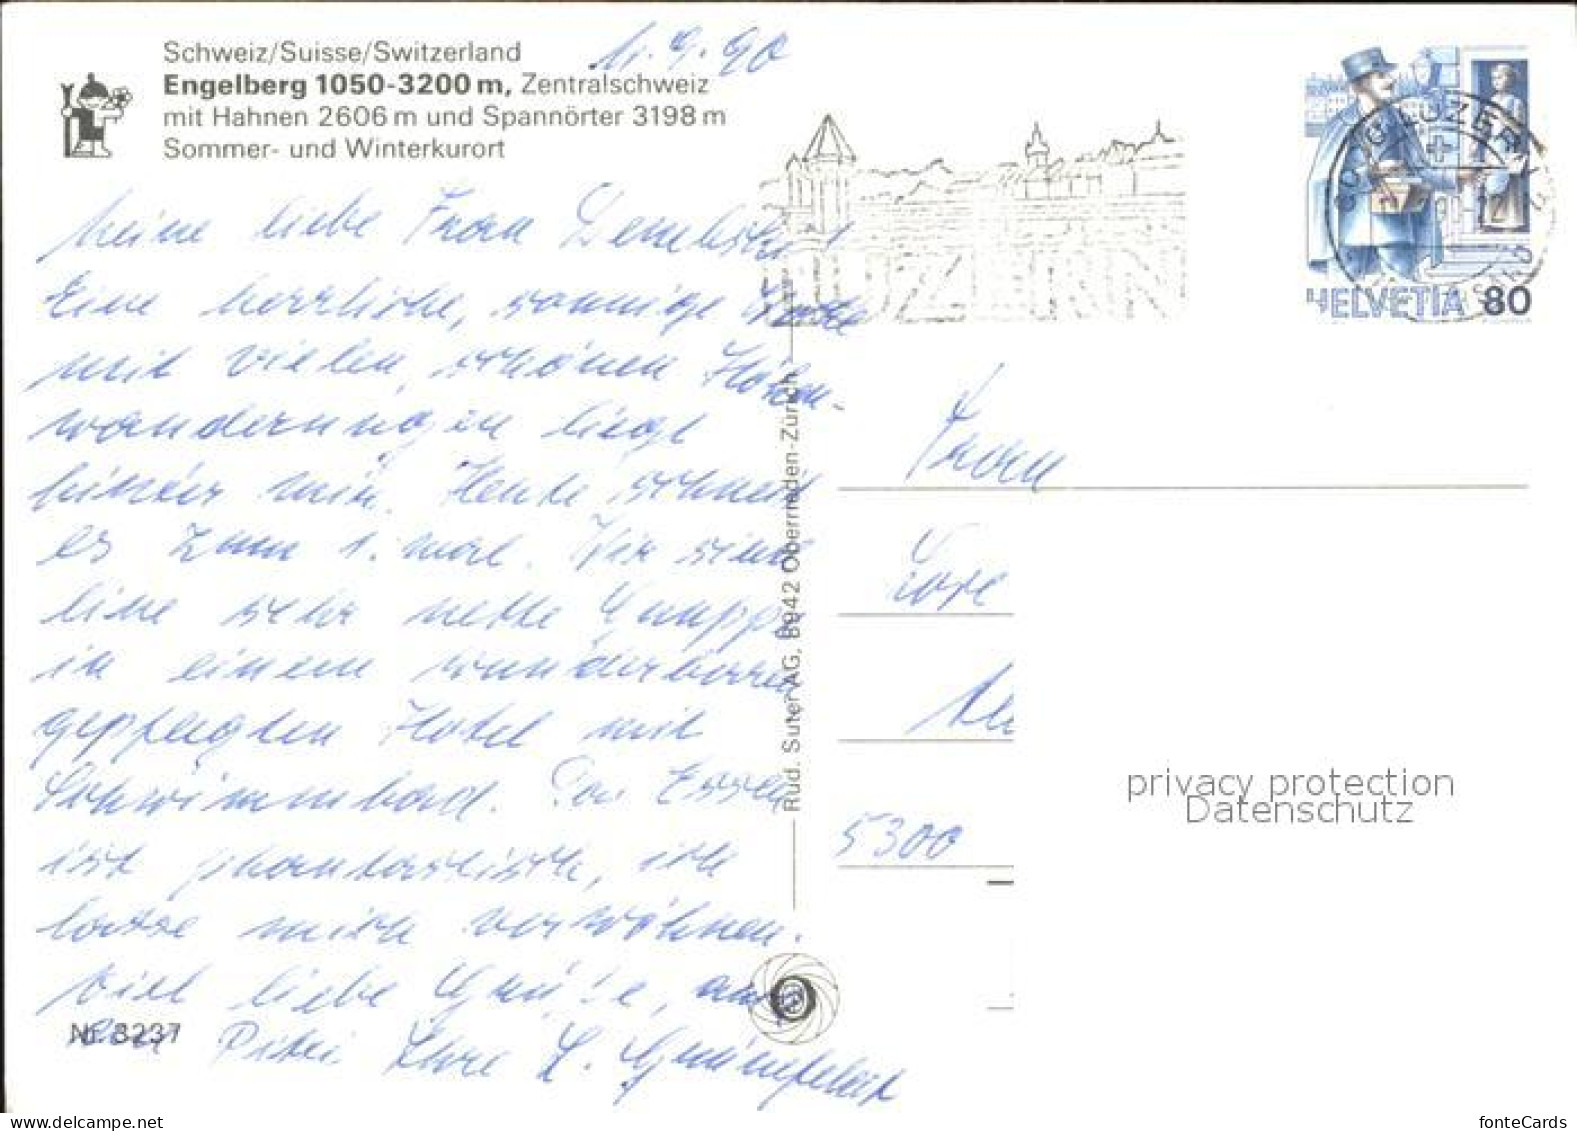 Schweiz/Suisse/Switzerland
Engelberg 1050-3200 m, Zentralschweiz
mit Hahnen 2606 m und Spannörter 3198 m
Sommer- und Winterkurort
11.9.90
Meine liebe Frau
Eine herrliche, sonnige
mit vielen, schönen Höhen-
wanderungen liegt
hinter mir. Heute schneit
es zum 1. mal. Wir sind
eine sehr nette Gruppe
in einem wunderbaren
gepflegten Hotel mit
Schwimmbad. Das Essen
ist phantastisch, ich
lasse mich verwöhnen.
Viel liebe Grüße, auch
Ihre L. Grünfeld
Nr. 3237
Rud. Suter AG, 8942 Oberrieden-Zürich
LUZERN
LUZERN
HELVETIA 80
Frau
Lore
5300
privacy protection
Datenschutz
www.delcampe.net
fonteCards